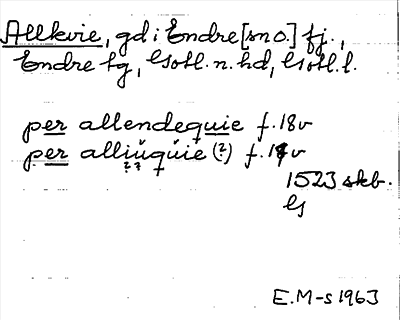 Allkvie, gd i Endre [sn o.] fj.,
Endre tg, Gotl. n. hd, Gotl. l.
per allendequie f. 18v
per alliuquie (?) f. 18v
1523 skb.
G
E.M-s 1963